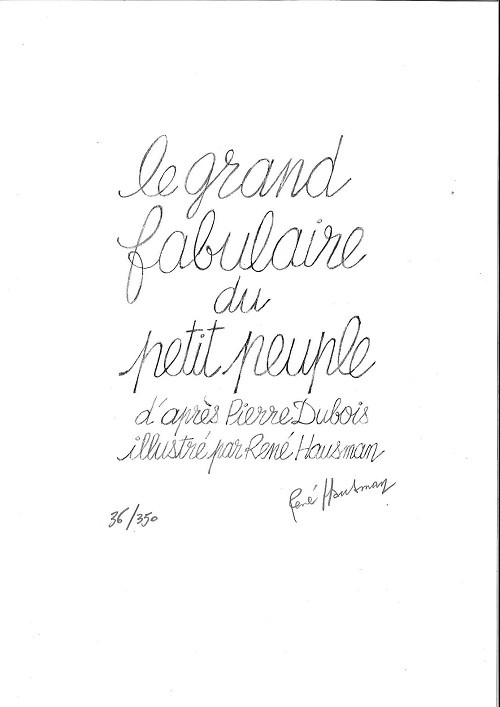 le grand
fabulaire
du
petit peuple
d'après Pierre Dubois
illustré par René Hausman
René Hausman
36/350